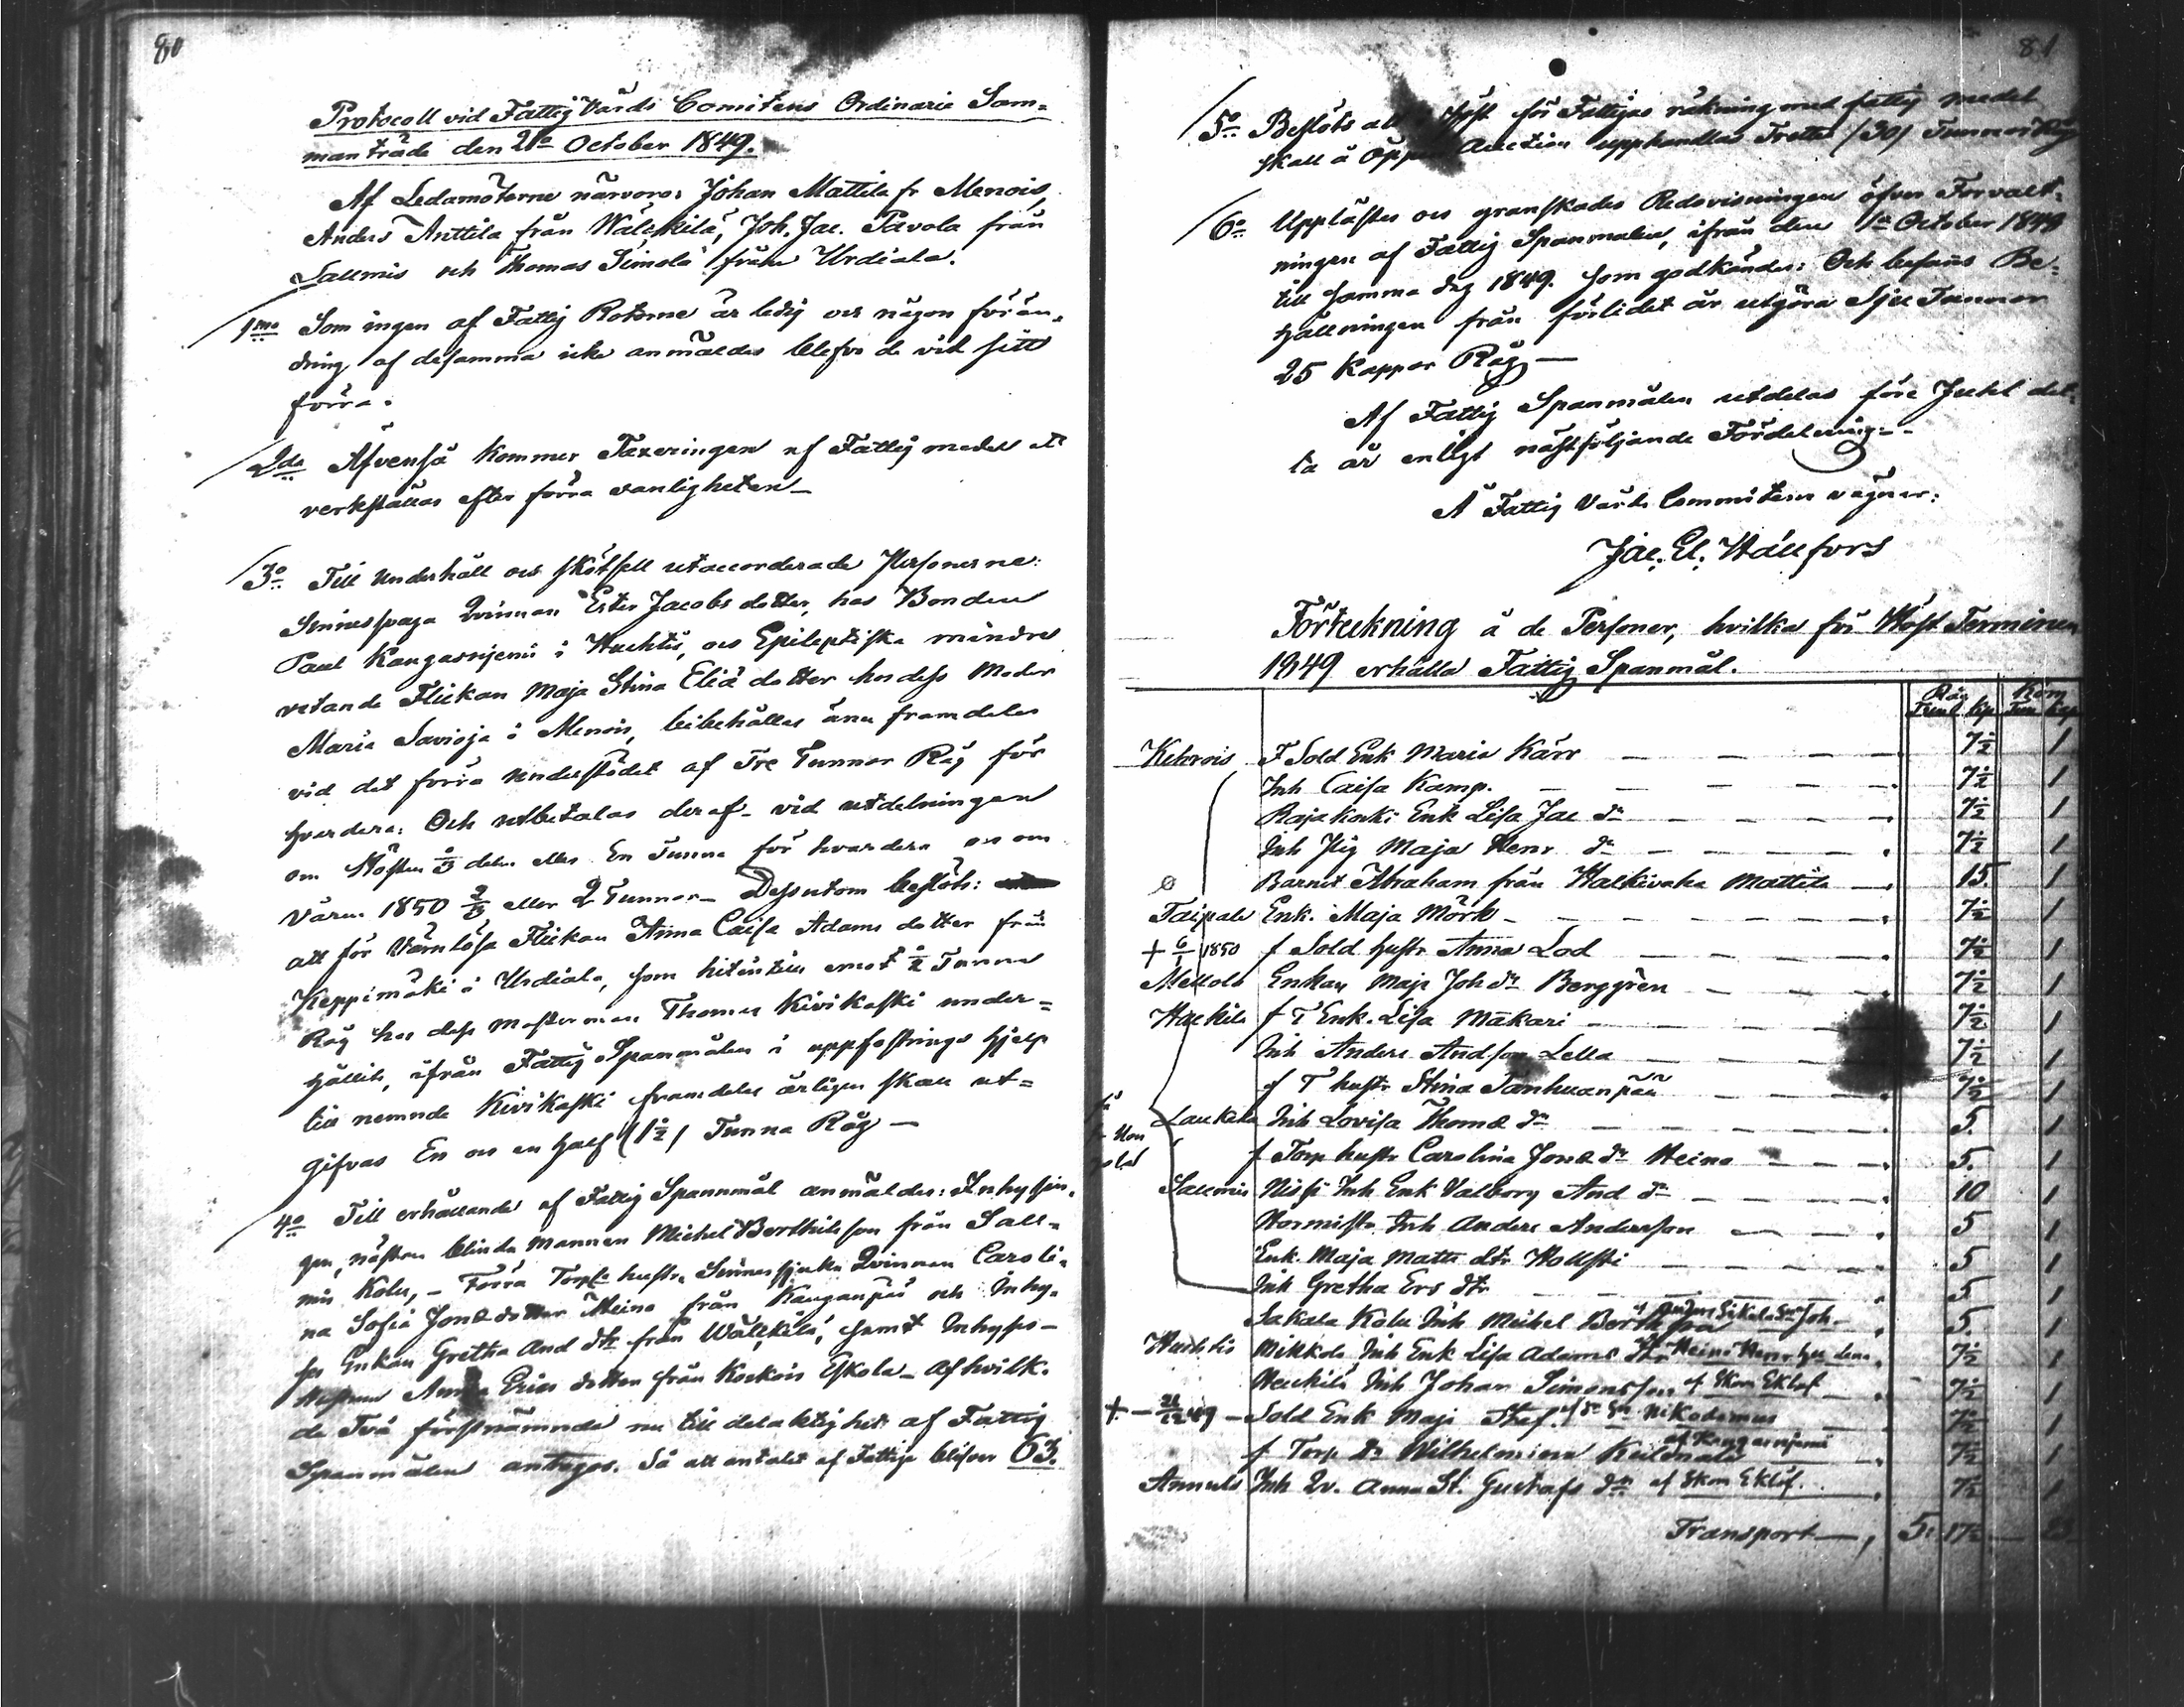 80
Protocoll vid Fattig Vårds Comiténs Ordinarie Sam=
manträde den 2a October 1849.
Af Ledamöterne närvoro: Johan Mattila fr Menois,
Anders Anttila från Wälkkilä, Joh. Jac. Pavola från
Salmis och Thomas Simola från Urdiala.
1mo Som ingen af Fattig Roterne är ledig och någon förän=
dring af desamma icke anmäldes blefvo de vid sitt
förra.
2do Äfvenså kommer Taxeringen af Fattig medel at
verkställas efter förra vanligheten —
3o Till underhåll och skötsell utaccorderade Personerne:
Sinnessvaga Qvinnan Ester Jacobsdotter, hos Bonden
Paul Kangasniemi i Huhtis, och Epileptiska mindre
vetande Flickan Maja Stina Eliædotter hos dess Moder
Maria Savioja i Menois, bibehålles ännu framdeles
vid det förra understödet af Tre Tunnor Råg för
hvardera: Och utbetalas deraf vid utdelningen
om Hösten 1/3 delen eller En Tunna för hvardera och om
Våren 1850 2/3 eller 2 Tunnor — Dessutom beslöts:
att för Värnlösa Flickan Anna Caisa Adamsdotter från
Keppimäki i Urdiala, som hitintills emot 1/2 Tunna
Råg hos dess Mosterman Thomas Kivikoski under=
hållits, ifrån Fattig Spanmålen i uppfostrings hjelp
till nemnde Kivikoski framdeles årligen skall ut=
gifvas En och en half (1 1/2) Tunna Råg —
4o Till erhållande af Fattig Spannmål anmäldes: Inhysin=
gen, nästan blinda Mannen Michel Berthilsson från Sall=
mis Kolu, — Förra Torp. hustru Sinnessjuka Qvinnan Caroli=
na Sofia Jonædotter Heino från Kanganpää och Inhy=
ses Enkan Gretha And dtr från Wälkkilä, samt Inhyses
Hustrun Anna Ericsdotter från Kockois Eskola — af hvilk.
de Två förstnämnde nu till delaktighet af Fattig
Spanmålen antogos. Så att antalet af Fattige blifver 63.
81
5o Beslöts att i Höst för Fattigas räkning med fattig medel
skall å Öppen Auction upphandlas Trettio (30) Tunnor Råg
6o Upplästes och granskades Redovisningen öfver Förvalt=
ningen af Fattig Spanmålen, ifrån den 1a October 1848
till samma dag 1849. som godkändes: Och befans Be=
hållningen från förlidet år utgöra Sju Tunnor
25 Kappar Råg —
Af Fattig Spanmålen utdelas före Juhl det=
ta år enligt nästföljande Fördelning —
Å Fattig Vårds Committéns vägnar:
Jac. El. Hällfors
Förteckning å de Personer, hvilka för Höst Terminen
1849 erhålla Fattig Spanmål.
Råg Korn
Tun Kp Tun Kp
Kehrois F Sold Enk Maria Kärr — 7½ 1
Inh Caisa Kamp. — 7½ 1
Rajakoski Enk Lisa Jac dr — 7½ 1
Inh Pig Maja Henr dr — 7½ 1
Barnet Abraham från Halkivaha Mattila — 15. 1
Taipale Enk. Maja Mörk — 7½ 1
+ 6/1 1850 f Sold hustr Anna Lod — 7½ 1
Mellola Enkan Maja Joh dr Berggren — 7½ 1
Huhkila f T Enk. Lisa Mäkari — 7½ 1
Inh Anders Andsson Lella — 7½ 1
f T hustr Stina Tanhuanpää — 7½ 1
Laukela Inh Lovisa Thomæ dr — 5. 1
f Torp hustr Carolina Jonæ dr Heino — 5. 1
Sallmis Nissi Inh Enk Valborg And dr — 10 1
Hormisto Inh Anders Andersson — 5 1
Enk. Maja Matts dtr Hollsti — 5 1
Inh Gretha Ers dtr — 5 1
Sakala Kolu Inh Michel Berthsson 5. 1
Huhtis Mikkola Inh Enk Lisa Adams dtr 7½ 1
Heickilä Inh Johan Simonsson af Skom Eklöf 7½ 1
+ — 49 — Sold Enk Maja Staf. Nikodemus 7½ 1
f Torp dr Wilhelmina af Kangasniemi 7½ 1
Annula Inh Qv. Anna St. Gustafs dr af Skom Eklöf. 7½ 1
Transport —, 5. 17½ — 23